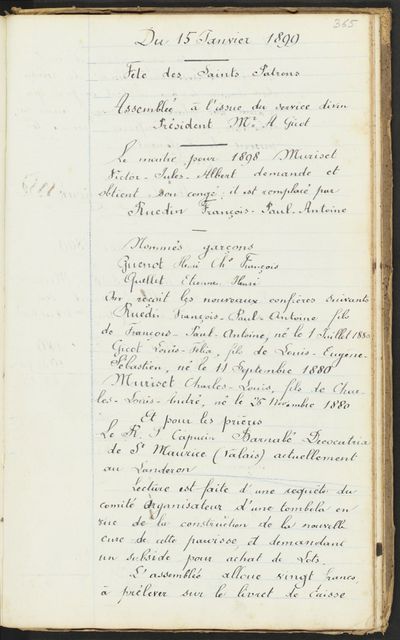 365
Du 15 Janvier 1890
Fête des Saints Patrons
Assemblée à l'issue du service divin
Président Mr A Gicot
Le maître pour 1898 Muriset
Victor-Jules-Albert demande et
obtient son congé, il est remplacé par
Ruedin François-Paul-Antoine
Nommés garçons
Quenot Henri Chs François
Quellet Etienne Henri
On reçoit les nouveaux confrères suivants
Ruedin François-Paul-Antoine fils
de François-Paul-Antoine, né le 1 Juillet 1880
Gicot Louis-Felix, fils de Louis-Eugène-
Sébastien, né le 11 Septembre 1880
Muriset Charles-Louis, fils de Char-
les-Louis-André, né le 25 Novembre 1880
Et pour les prières
Le R. P Capucin Barnabé
de St Maurice (Valais) actuellement
au Landeron
Lecture est faite d'une requête du
comité organisateur d'une tombola en
vue de la construction de la nouvelle
cure de cette paroisse et demandant
un subside pour achat de lots.
L'assemblée alloue vingt francs
à prélever sur le livret de Caisse